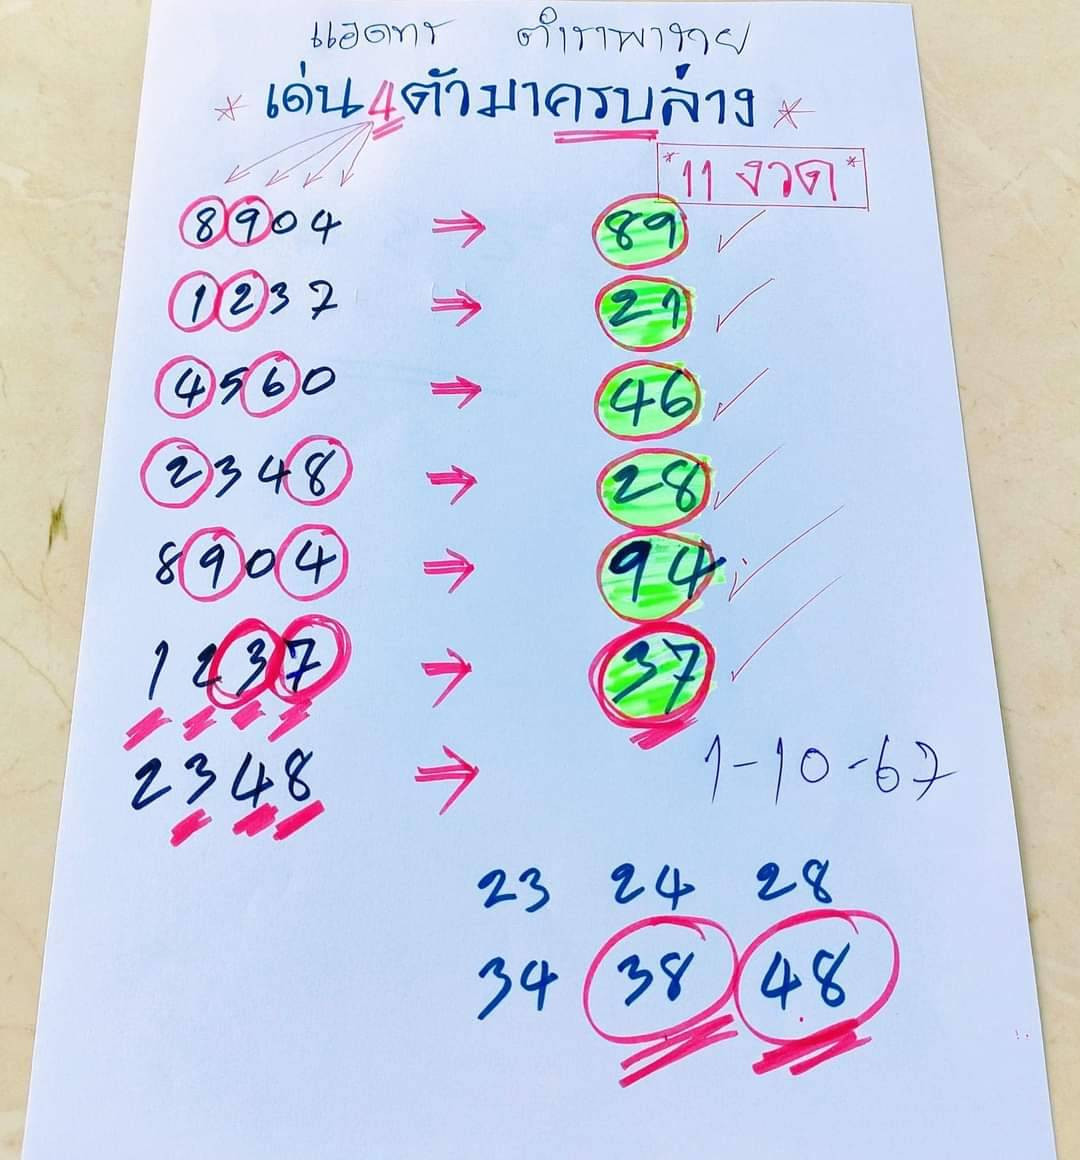 แอดทร ตำราพารวย
* เด่น 4 ตัวมาครบล่าง *
*11 งวด*
8904 ⇒ 89 ✓
1237 ⇒ 21 ✓
4560 ⇒ 46 ✓
2348 ⇒ 28 ✓
8904 ⇒ 94 ✓
1237 ⇒ 37 ✓
2348 ⇒ 1-10-67
23 24 28
34 38 48